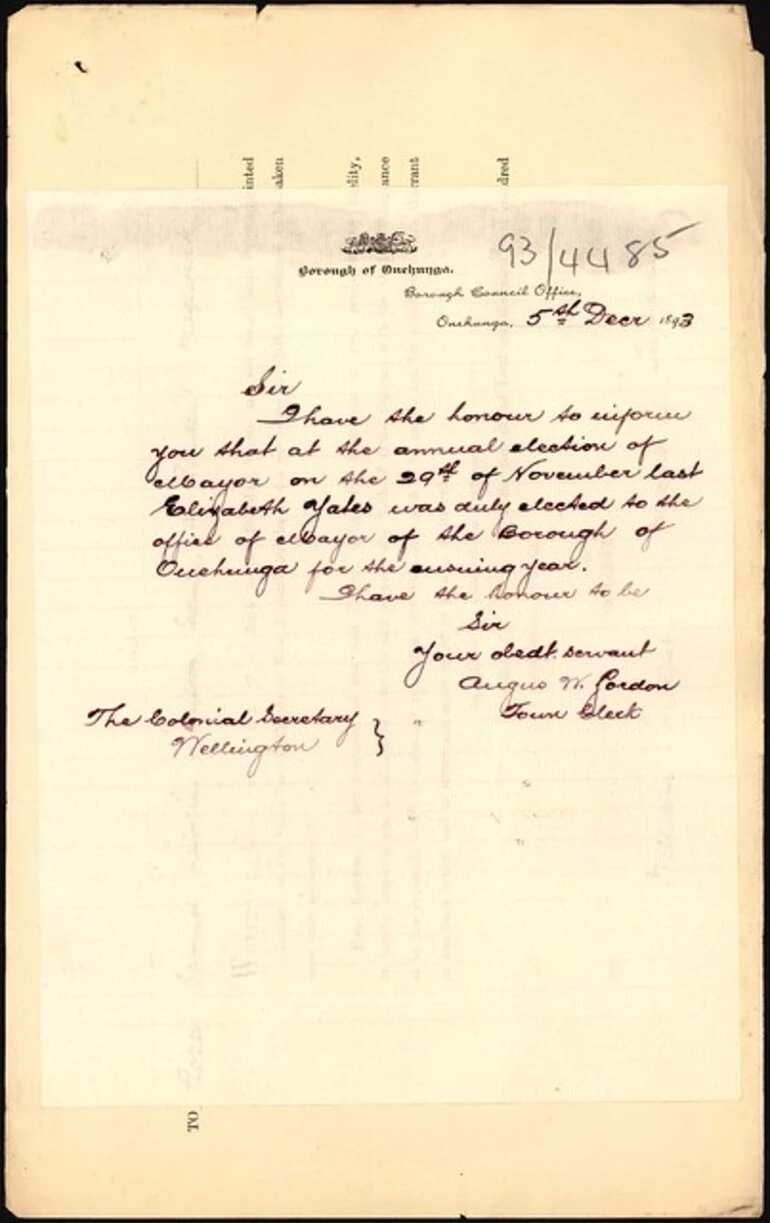 inted
aken
lity,
ance
rrant
dred
93/4485
Borough of Onehunga.
Borough Council Office,
Onehunga, 5th Decr 1893
Sir
I have the honour to inform
you that at the annual election of
Mayor on the 29th of November last
Elizabeth Yates was duly elected to the
office of Mayor of the Borough of
Onehunga for the ensuing year.
I have the honour to be
Sir
Your obedt. servant
Angus W. Gordon
Town Clerk
The Colonial Secretary
Wellington
TO